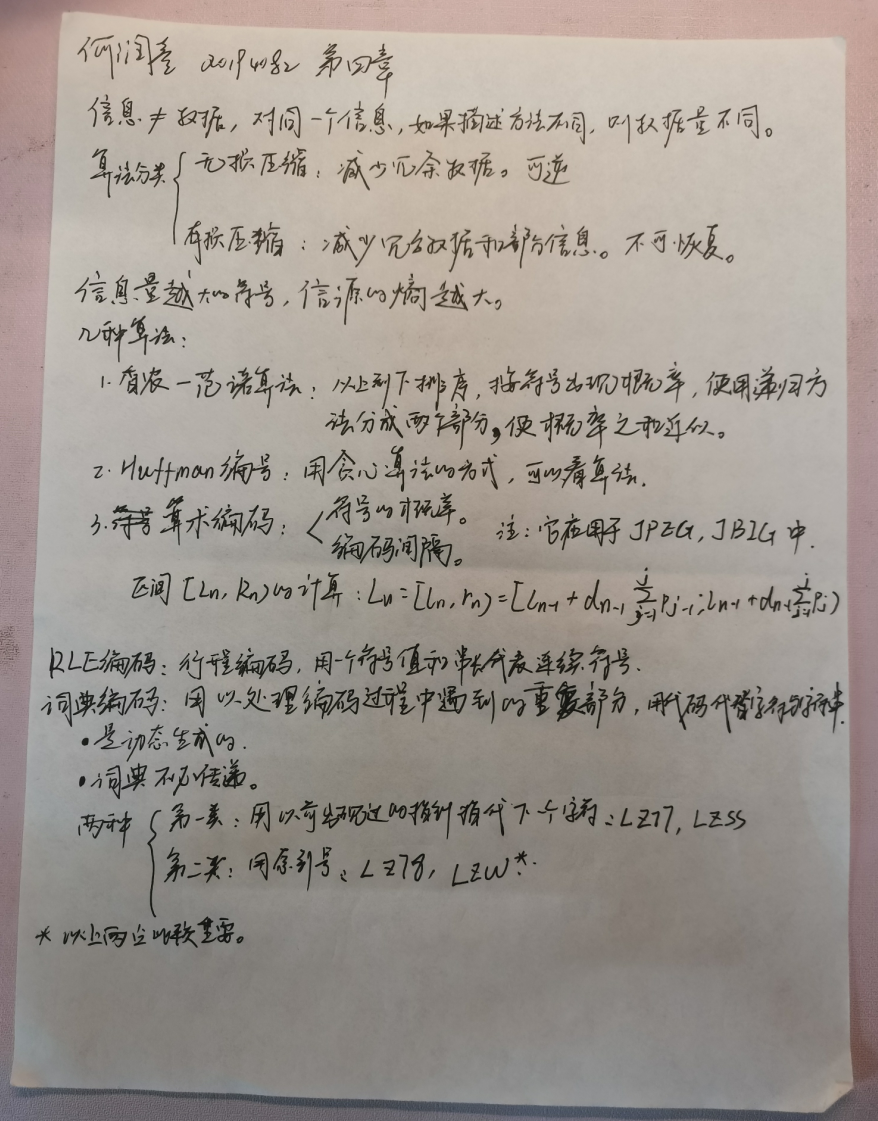 何润 20194082 第四章
信息≠数据，对同一个信息，如果描述方法不同，则数据量不同。
算法分类 { 无损压缩：减少冗余数据。可逆
有损压缩：减少冗余数据和部分信息。不可恢复。
信息量越大的符号，信源的熵越大。
几种算法：
1. 香农—范诺算法：以上到下排序，按符号出现概率，使用递归方
法分成两个部分，使概率之和近似。
2. Huffman编号：用贪心算法的方式，可以看算法.
3. 算术编码：< 符号的概率。
编码间隔。 注：它应用于JPEG，JBIG中.
区间[Ln, Rn)的计算：Ln=[ln, rn)=[ln-1+dn-1 Σ Pj-1; ln-1+dn-1 Σ Pj)
RLE编码：行程编码，用一个符号值和串长代表连续符号.
词典编码：用以处理编码过程中遇到的重复部分，用代码代替字符与字符串.
• 是动态生成的.
• 词典不必传递。
两种 { 第一类：用以前出现过的指针指代下个字符：LZ77, LZSS
第二类：用索引号：LZ78, LZW*.
* 以上两点比较重要。